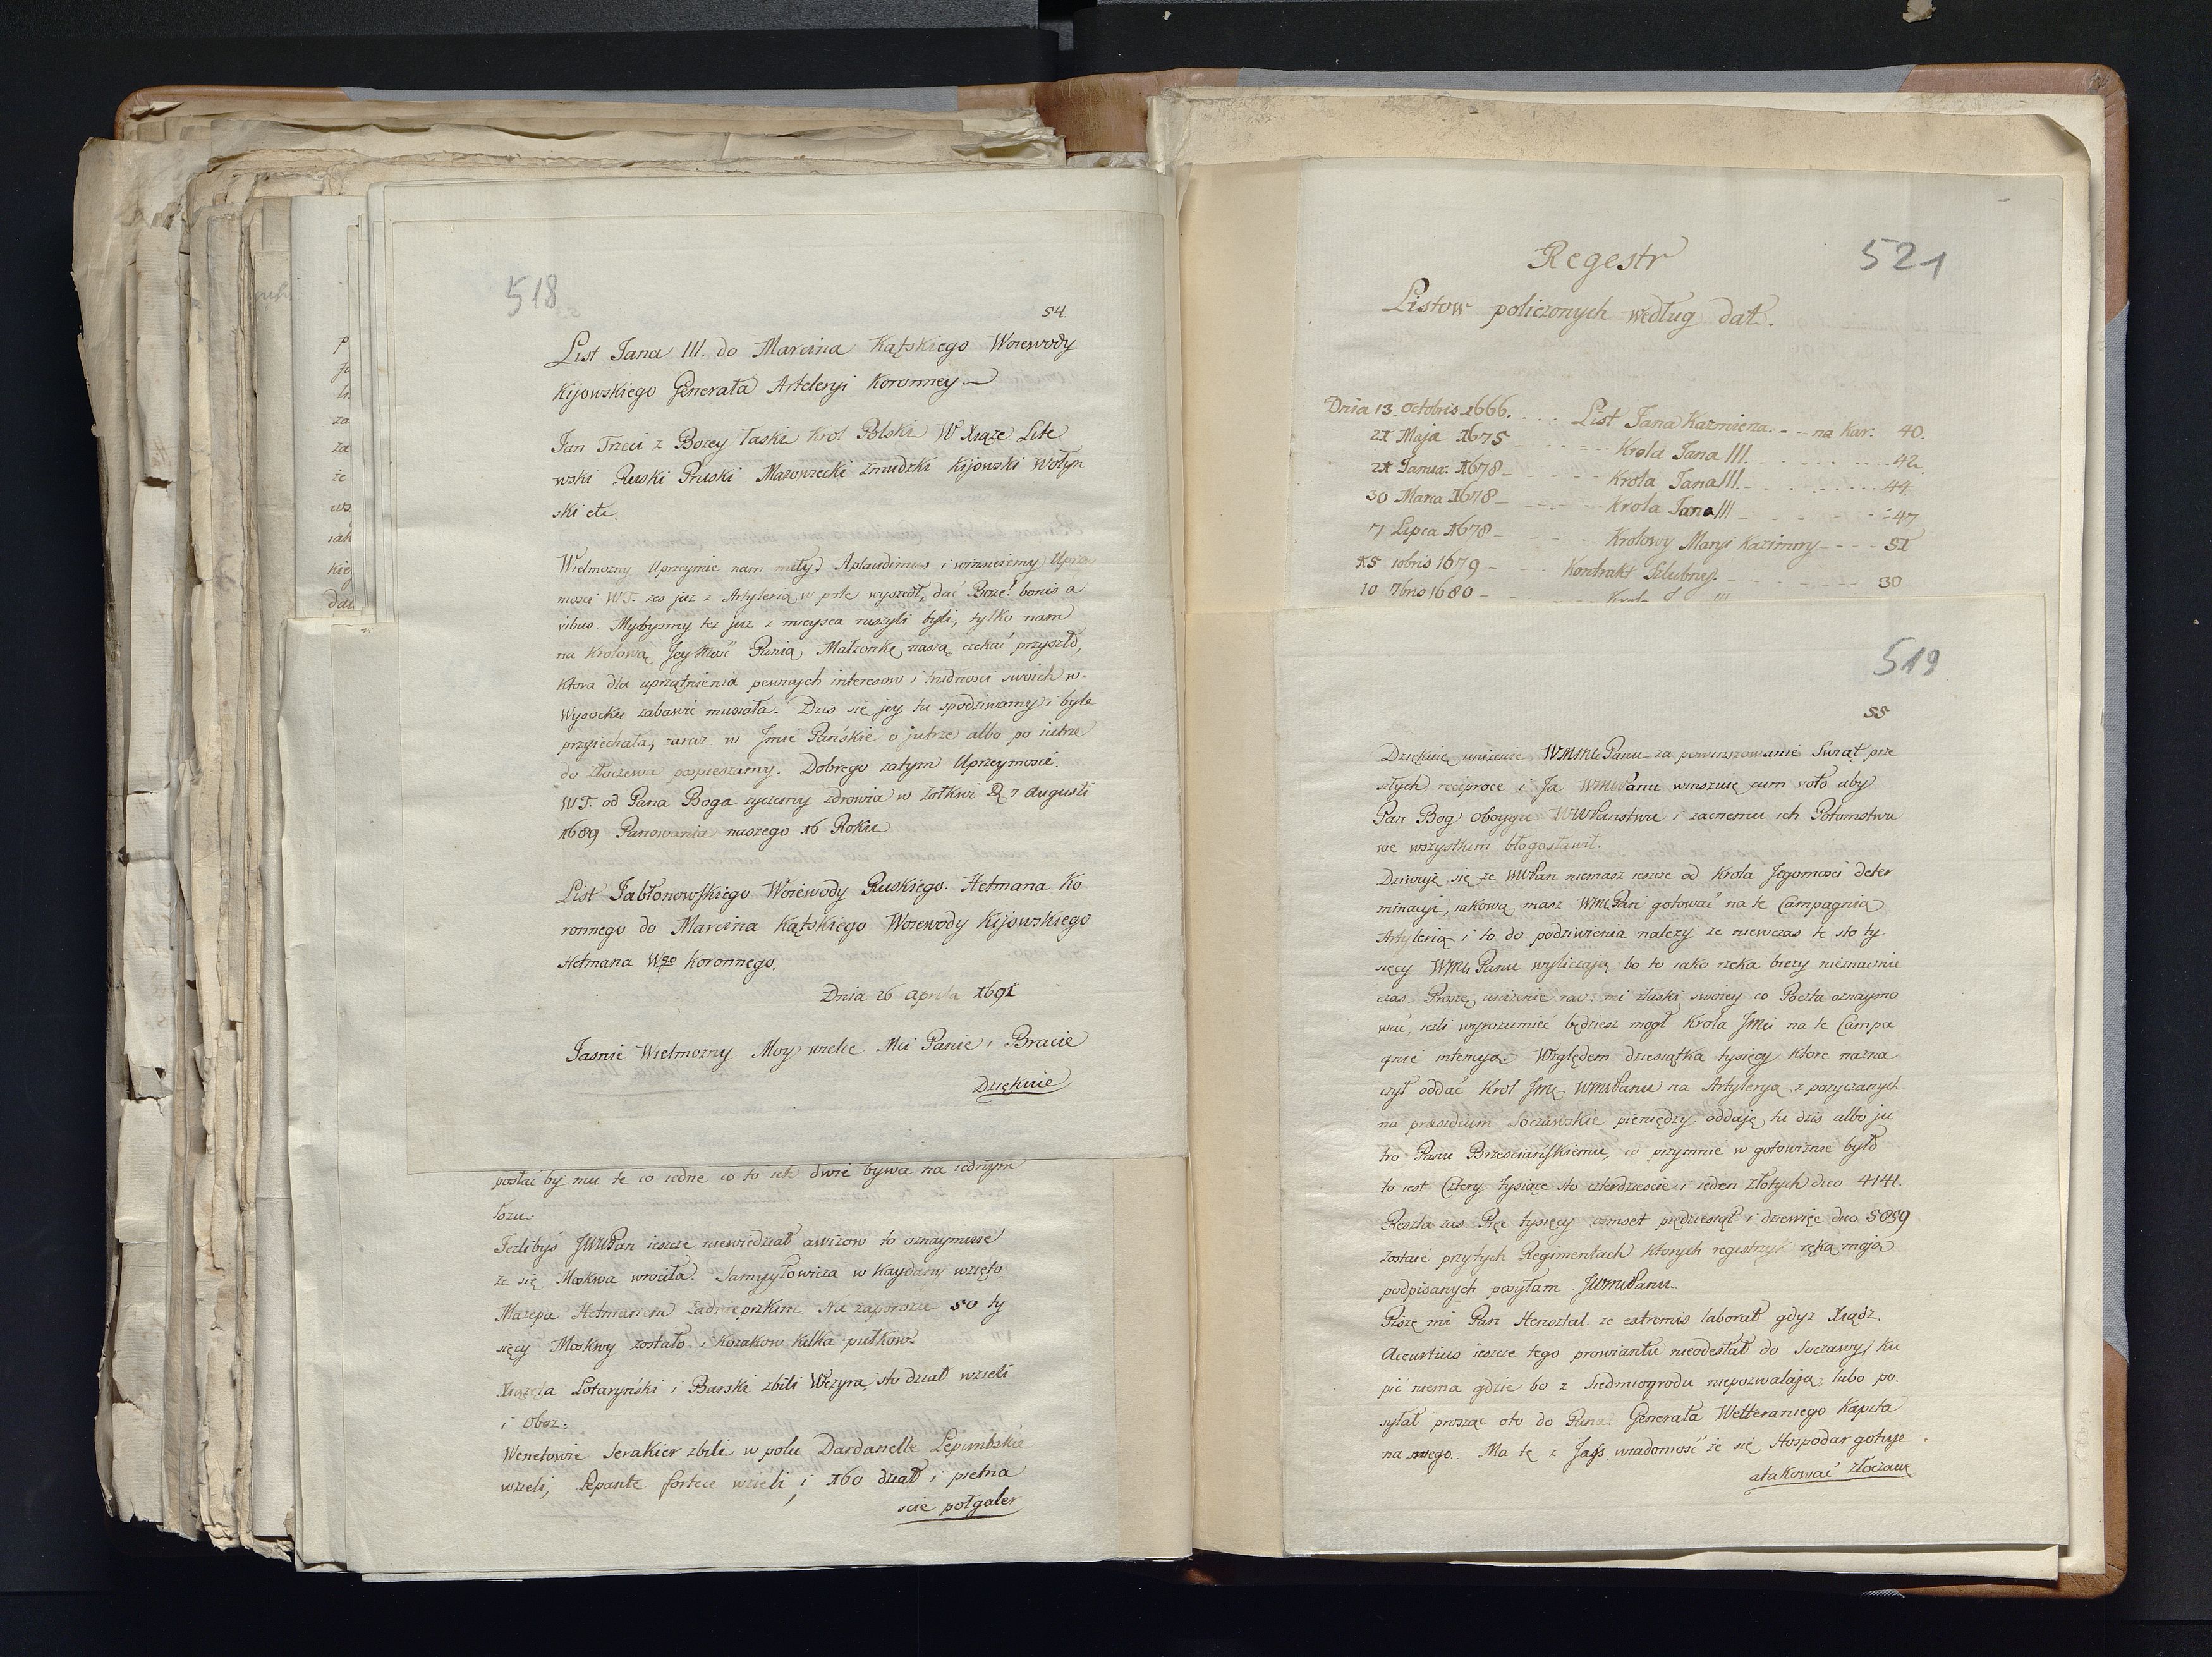 518
54.
List Jana III. do Marcina Kątskiego Woiewody
Kijowskiego Generała Arteleryi Koronney —
Jan Trzeci z Bozey łaski Krol Polski W Xiąze Lite
wski Ruski Pruski Mazowiecki Zmudzki Kijowski Wołyn
ski etc.
Wielmozny Uprzeymie nam miły. Aplaudimus i winszuiemy Uprzey
mosci WT. zes juz z Artyleryą w pole wyszedł, dać Boze! bonis a
vibus. Mybysmy tez juz z mieysca ruszyli byli, tylko nam
na Krolową Jey Mość Panią Małzonkę naszą czekać przyszło,
ktora dla uprzątnienia pewnych interesow i trudnosci swoich w
Wysocku zabawić musiała. Dzis się jey tu spodziwamy i byle
przyiechała, zaraz w Jmie Pańskie o jutrze albo po iutrze
do Złoczewa pospieszamy. Dobrego zatym Uprzeymosci
WT. od Pana Boga zyczemy zdrowia w Zołkwi D 7 Augusti
1689 Panowania naszego 16 Roku
List Jabłonowskiego Woiewody Ruskiego. Hetmana Ko
ronnego do Marcina Kątskiego Woiewody Kijowskiego
Hetmana Wgo Koronnego.
Dnia 26 Aprila 1691
Jasnie Wielmozny Moy wielce Mci Panie i Bracie
Dziękuie
posłać by mu te co iedne co to ich dwie bywa na iednym
łozu.
Jezlibyś JWWPan ieszcze niewiedział awizow to oznaymuie
ze się Moskwa wrociła. Samuyłowicza w Kaydany wzięto
Mazepa Hetmanem Zadnieprskim. Na zaporozu 50 ty
sięcy Moskwy zostało i Kozakow kilka pułkow.
Xiązęta Lotaryński i Barski zbili Wezyra, sto dział wzieli
i oboz.
Wenetowie Serakier zbili w polu Dardanelle Lepantskie
wzieli, Lepante fortece wzieli, i 160 dział i pietna
scie połgaler
Regestr
521
Listow policzonych według dat.
Dnia 13. Octobris 1666. - - - List Jana Kazmierza. - - na Kar: 40.
21 Maja 1675 - - - - Krola Jana III. - - - - 42.
21 Janua: 1678 - - - - Krola Jana III. - - - - 44.
30 Marca 1678 - - - - Krola Jana III - - - - 47
7 Lipca 1678 - - - - Krolowy Maryi Kazimiry - - - - 51
15 iobris 1679 - - Kontrakt Szlubny. - - - - 30
10 7bris 1680 -
519
55
Dziękuię unizenie WMMu Panu za powinszowanie Swiąt prze
szłych reciproce i Ja WMWPanu winszuię cum voto aby
Pan Bog oboyga WWPaństwu i zacnemu ich Potomstwu
we wszystkim błogosławił.
Dziwuię się ze WWPan niemasz ieszcze od Krola Jegomosci deter
minacyi, iakową masz WMPan gotować na te Campagnią
Artyleryą i to do podziwienia nalezy ze niewczas te sto ty
sięcy WM Panu wyliczają bo to iako rzeka biezy nieznacznie
czas. Proszę unizenie racz mi złaski swoiey co Poczta oznaymo
wać, iezli wyrozumieć będziesz mogł Krola Jmci na te Campa
gnie intencyą. Względem dziesiątka tysięcy ktore nazna
czył oddać Krol Jmc WMWPanu na Artyleryą z pozyczanych
na praesidium Soczawskie pieniędzy oddają tu dzis albo ju
tro Panu Brzesciańskiemu, co przymnie w gotowiznie było
to iest Cztery tysiące sto czterdziescie i ieden złotych dico 4141.
Reszta zas Pięc tysięcy ozmset pięcdziesiąt i dziewięc dico 5859
zostaie przytych Regimentach ktorych regestrzyk ręką moją
podpisanych posyłam JWMWPanu.
Pisze mi Pan Hensztal. ze extremis laborat gdyz Xiądz.
Accursius ieszcze tego prowiantu nieodesłał do Soczawy, Ku
pić niema gdzie bo z Siedmiogrodu niepozwalają, lubo po.
syłał prosząc oto do Pana Generała Wetteraniego Kapita
na swego. Ma tę z Jass wiadomość że się Hospodar gotuje
atakować Zloczawę